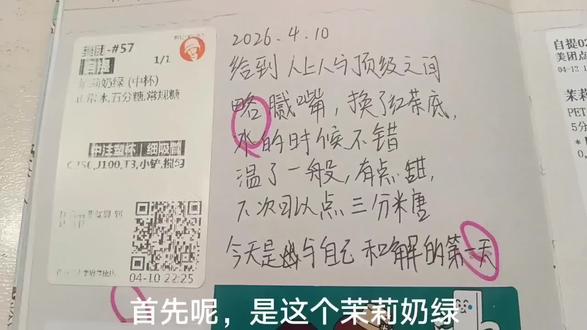 #57
1/1
茉莉奶绿 (中杯)
正常冰,五分糖,常规糖
04-10 22:25
2026.4.10
给到人上人与顶级之间
略腻嘴，换了红茶底，
冰的时候不错
温了一般，有点甜，
下次可以点三分糖
今天是与自己和解的第一天
自提02
美团点
04-12
茉莉
PET,
5分
首先呢，是这个茉莉奶绿